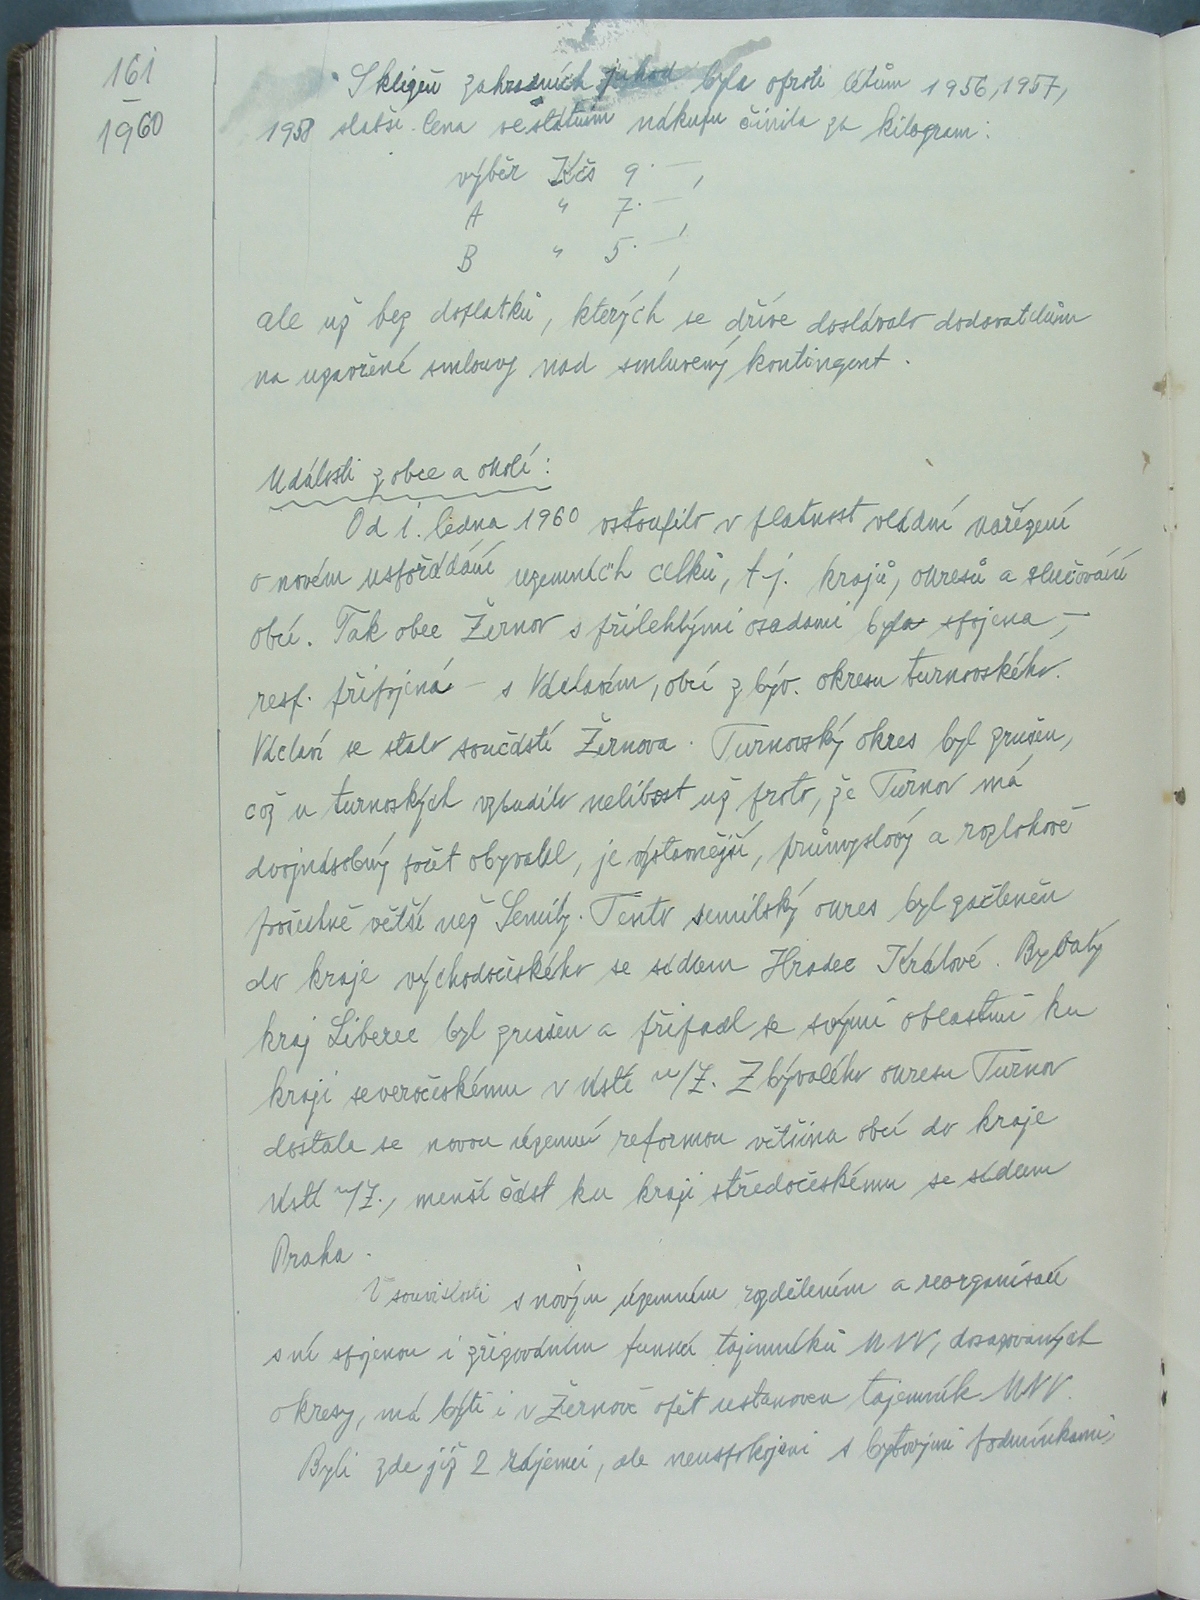 161
1960
Sklizeň zahradních jahod byla oproti létům 1956, 1957,
1958 slabší. Cena ve státním nákupu činila za kilogram:
výběr Kčs 9.—,
A " 7.—,
B " 5.—,
ale už bez doplatků, kterých se dříve dostávalo dodavatelům
na uzavřené smlouvy nad smluvený kontingent.
Události z obce a okolí:
Od 1. ledna 1960 vstoupilo v platnost vládní nařízení
o novém uspořádání územních celků, t.j. krajů, okresů a slučování
obcí. Tak obec Žernov s přilehlými osadami byla spojena –
resp. připojená – s Václavím, obcí z býv. okresu turnovského.
Václaví se stalo součástí Žernova. Turnovský okres byl zrušen,
což u turnovských vzbudilo nelibost už proto, že Turnov má
dvojnásobný počet obyvatel, je výstavnější, průmyslový a rozlohově
poměrně větší než Semily. Tento semilský okres byl začleněn
do kraje východočeského se sídlem Hradec Králové. Bývalý
kraj Liberec byl zrušen a připadl se svými oblastmi ku
kraji severočeskému v Ústí n/L. Z bývalého okresu Turnov
dostala se novou územní reformou většina obcí do kraje
Ústí n/L., menší část ku kraji středočeskému se sídlem
Praha.
V souvislosti s novým územním rozdělením a reorganisací
s ní spojenou i zřizováním funkcí tajemníků MNV, dosazovaných
okresy, má býti i v Žernově opět ustanoven tajemník MNV.
Byli zde již 2 zájemci, ale neuspokojeni s bytovými podmínkami,